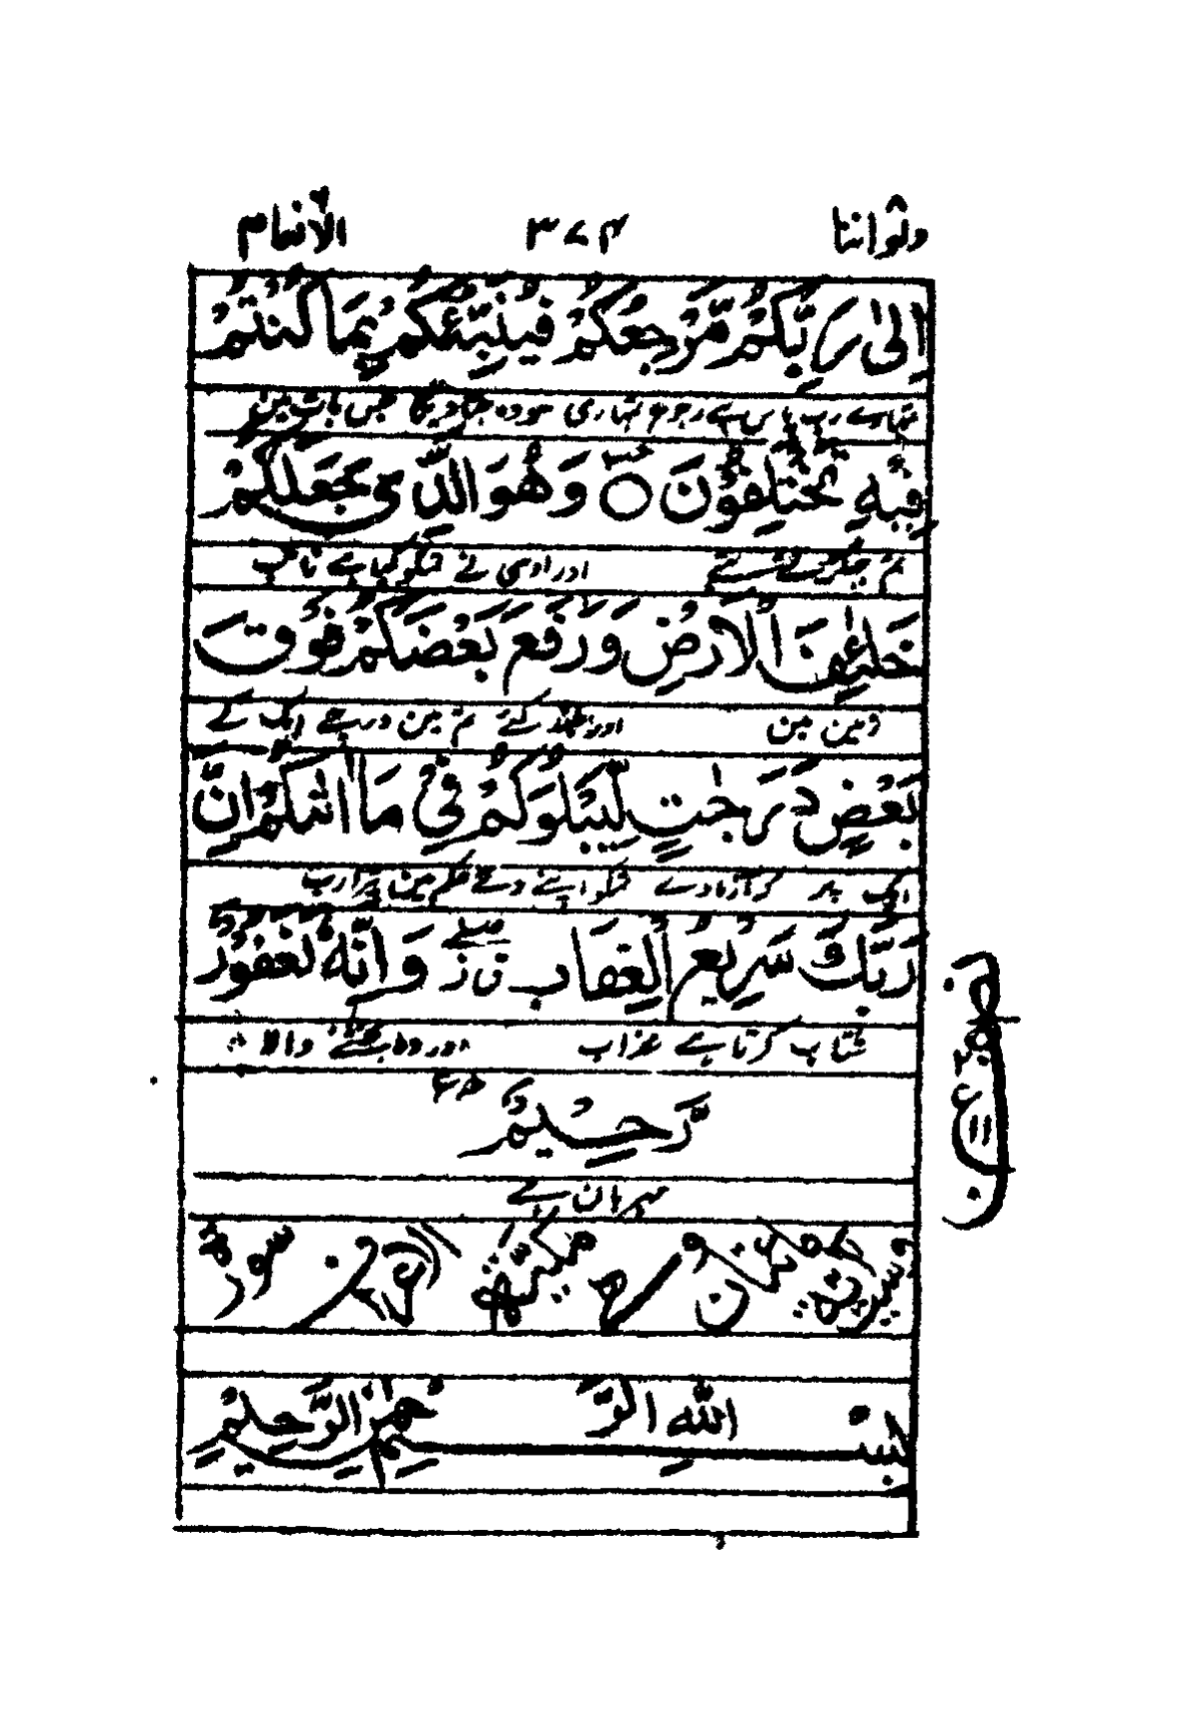 ولواننا ٣٧٤ الانعام
اِلٰى رَبِّكُمْ مَّرْجِعُكُمْ فَيُنَبِّئُكُمْ بِمَا كُنْتُمْ
تمہارے رب پاس ہے رجوع تمہاری سو وہ جتا دیگا جس بات مین
فِيْهِ تَخْتَلِفُوْنَ ○ وَهُوَ الَّذِىْ جَعَلَكُمْ
تم جھگڑتے تھے اور اوسی نے تمکو کیا ہے نائب
خَلٰٓئِفَ الْاَرْضِ وَرَفَعَ بَعْضَكُمْ فَوْقَ
زمین مین اور بلند کئے تم مین درجے ایک کے
بَعْضٍ دَرَجٰتٍ لِّيَبْلُوَكُمْ فِىْ مَاۤ اٰتٰىكُمْ اِنَّ
ایک پر کہ آزماوے تمکو اپنے دئے حکم مین تیرا رب
رَبَّكَ سَرِيْعُ الْعِقَابِ وَاِنَّهٗ لَغَفُوْرٌ
شتاب کرتا ہے عذاب اور وہ بخشنے والا
رَّحِيْمٌ
مہربان ہے
سورة
بِسْمِ اللّٰهِ الرَّحْمٰنِ الرَّحِيْمِ